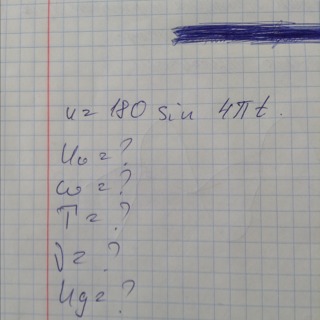 u = 180 sin 4πt.
U₀ = ?
ω = ?
T = ?
ν = ?
Uд = ?